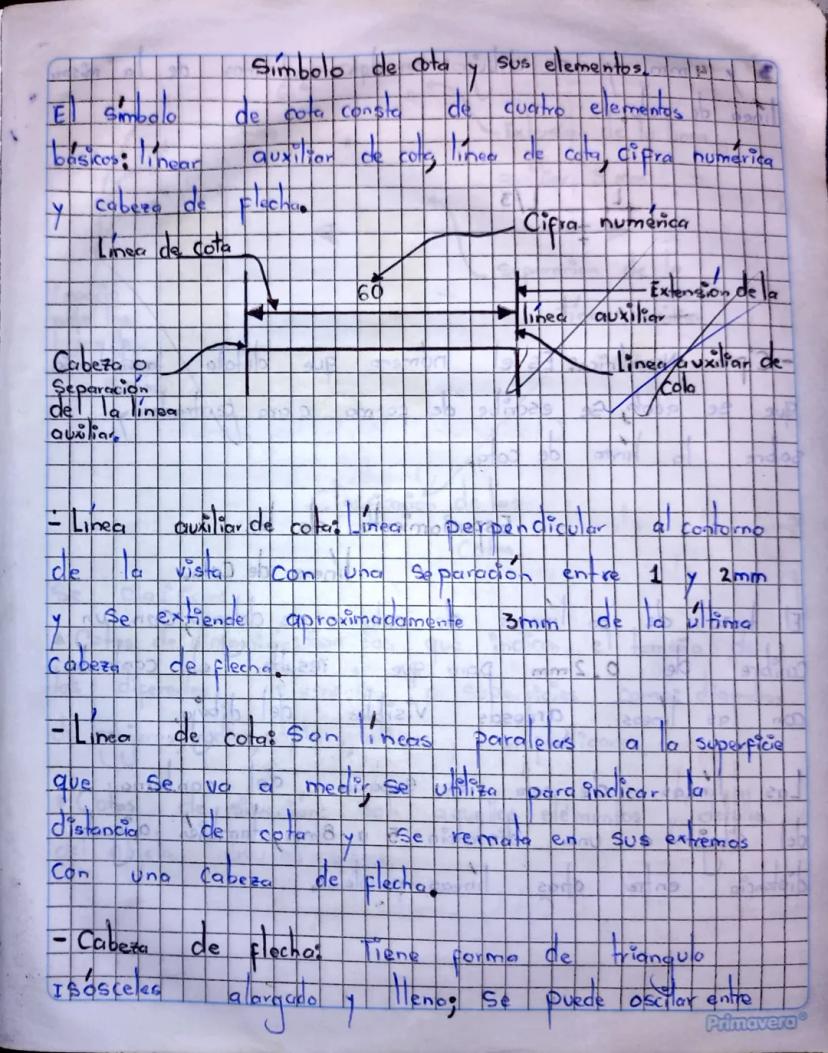 Símbolo de cota y sus elementos.
El símbolo de cota consta de cuatro elementos
básicos: línear auxiliar de cota, línea de cota, cifra numérica
y cabeza de flecha.
Cifra numérica
Línea de cota
60
Extensión de la
línea auxiliar
Cabeza o
Separación
del la línea
auxiliar.
Linea auxiliar de
cota
- Línea auxiliar de cota: Línea perpendicular al contorno
de la vista con una separación entre 1 y 2mm
y se extiende aproximadamente 3mm de la última
cabeza de flecha.
- Línea de cota: Son líneas paralelas a la superficie
que se va a medir, se utiliza para indicar la
distancia de cota y se remata en sus extremos
con una cabeza de flecha.
- Cabeza de flecha: Tiene forma de triangulo
Isósceles alargado y lleno; se puede oscilar entre
Primavera